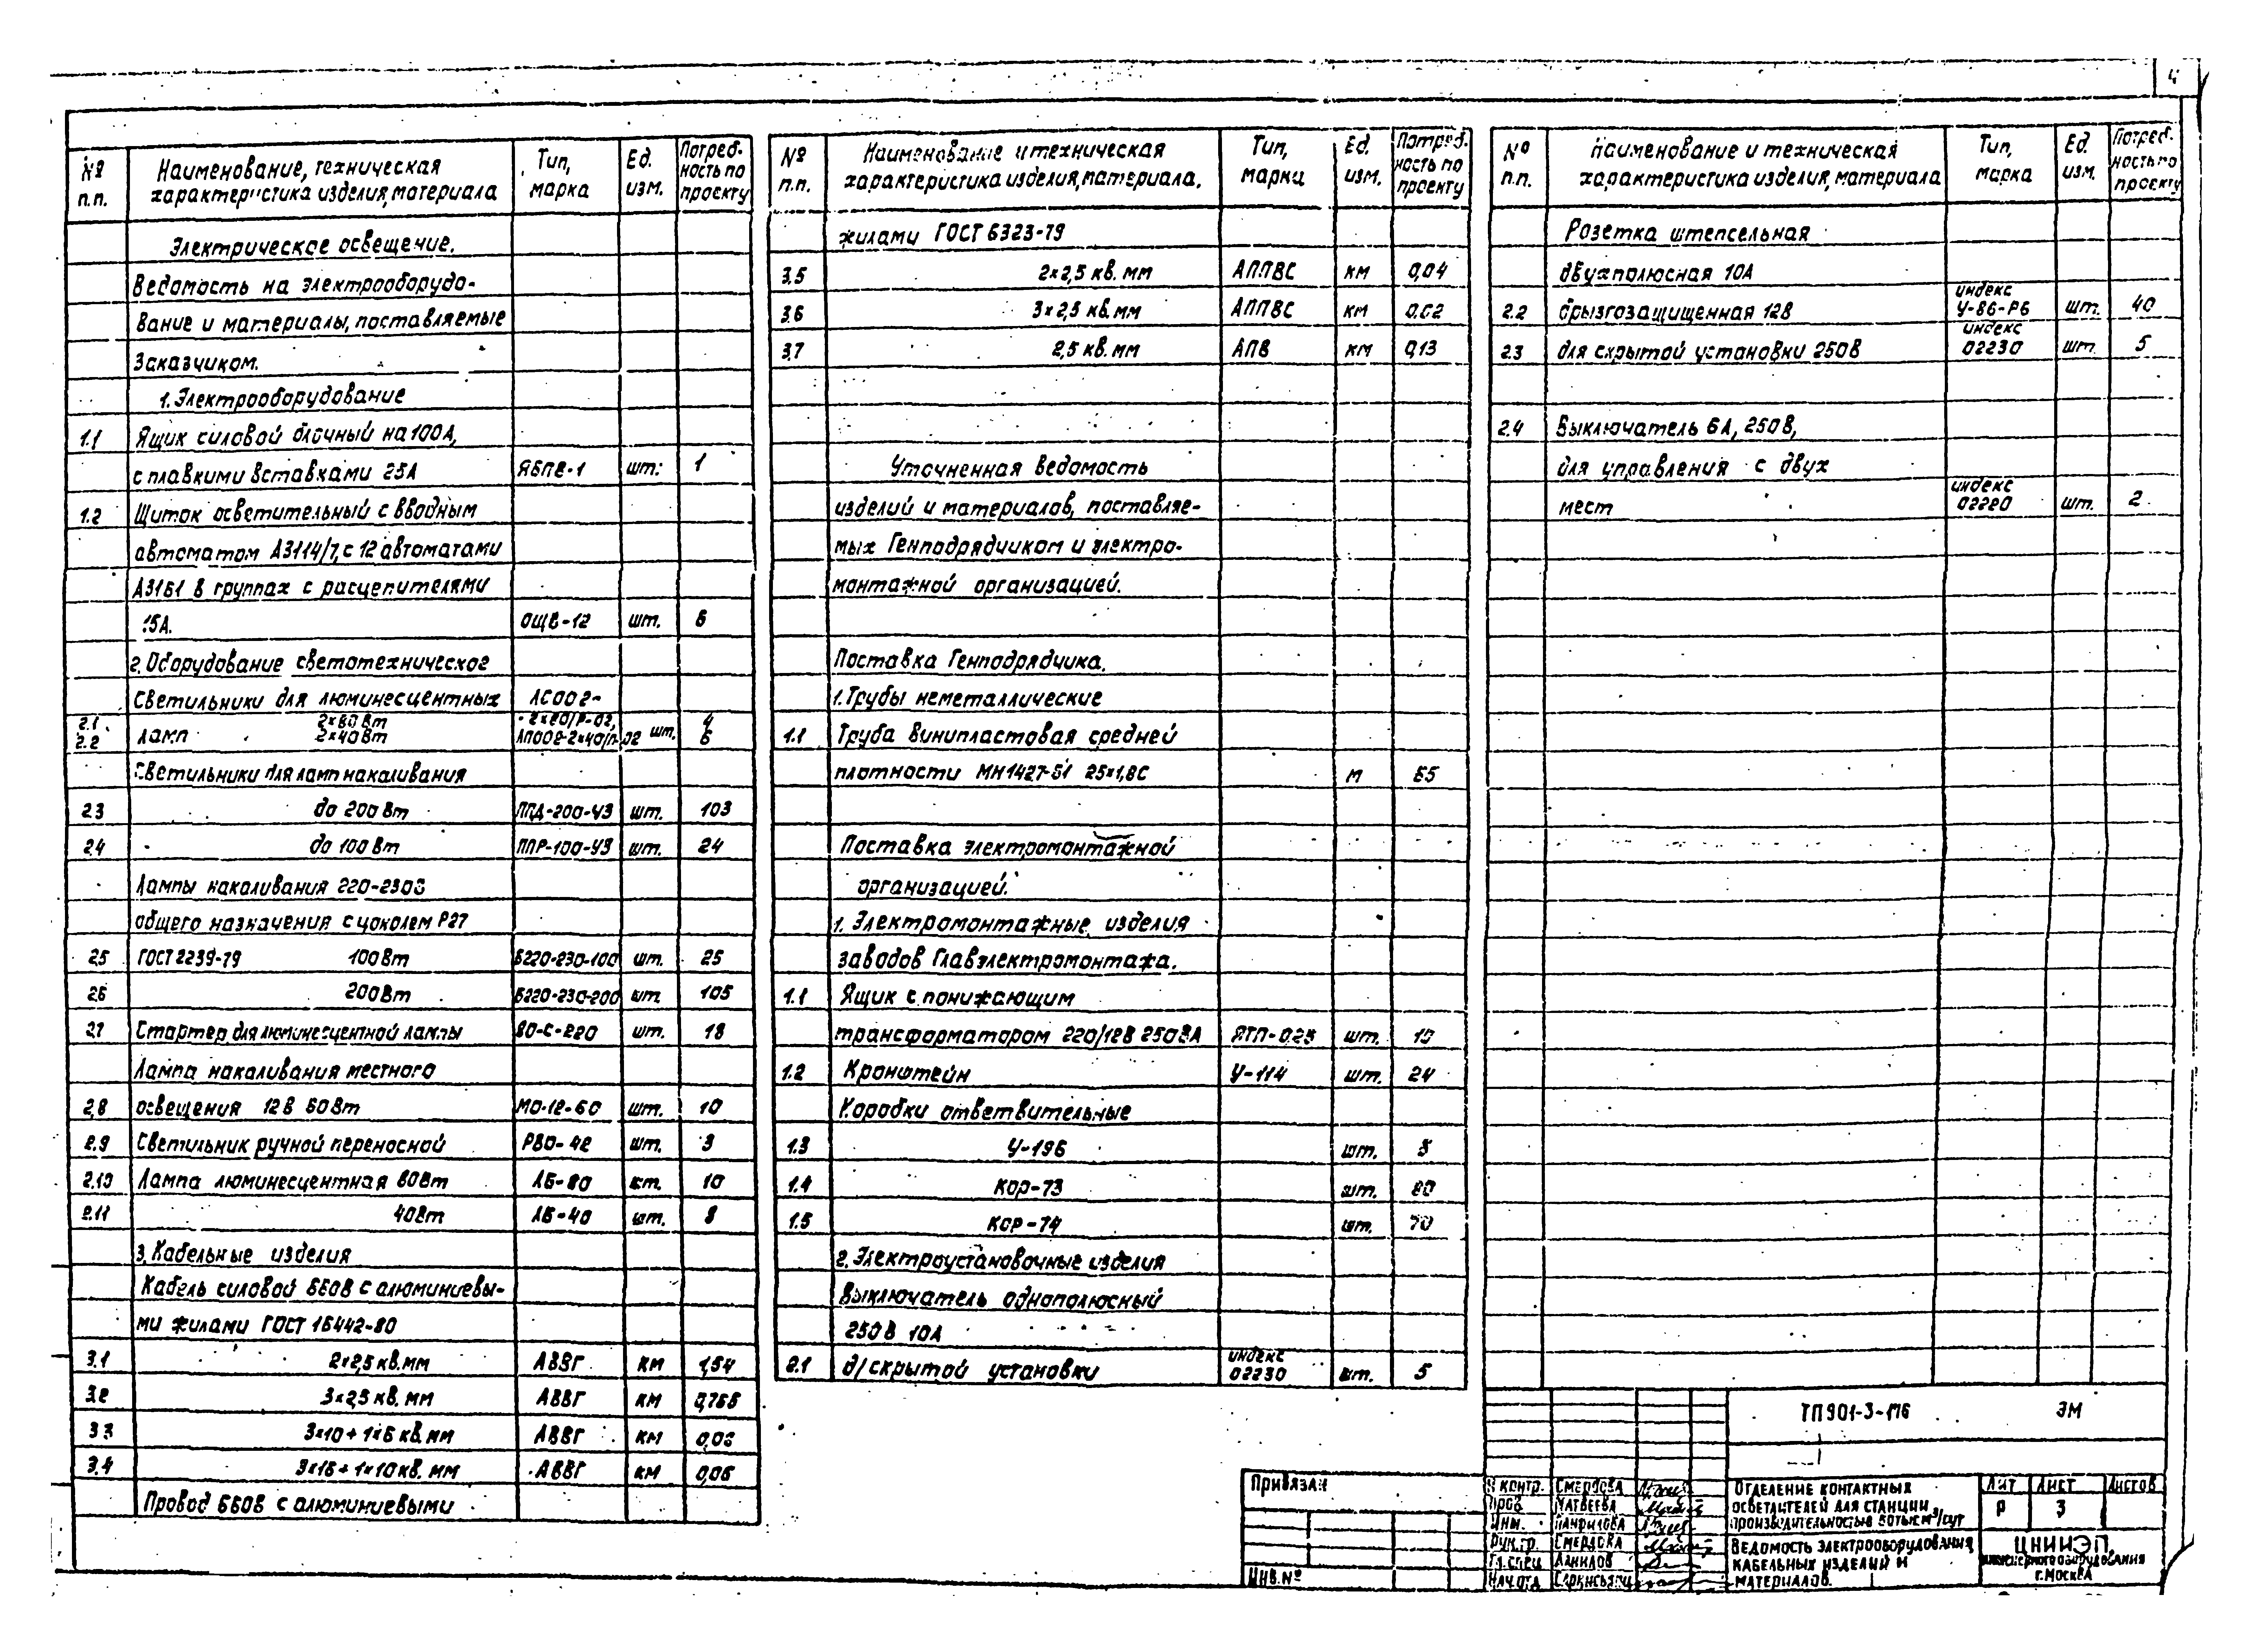 4
№ п.п. Наименование, техническая характеристика изделия, материала Тип, марка Ед. изм. Потреб-ность по проекту
Электрическое освещение.
Ведомость на электрооборудо-
вание и материалы, поставляемые
Заказчиком.
1. Электрооборудование
1.1 Ящик силовой блочный на 100А,
с плавкими вставками 25А ЯБПВ-1 шт. 1
1.2 Щиток осветительный с вводным
автоматом А3114/7, с 12 автоматами
А3161 в группах с расцепителями
15А. ОЩВ-12 шт. 6
2. Оборудование светотехническое
Светильники для люминесцентных ЛСО02-
2.1 2×80 Вт 2×80/Р-02, 4
2.2 ламп 2×40 Вт ЛПО02-2×40/П-02 шт. 6
Светильники для ламп накаливания
2.3 до 200 Вт ППД-200-У3 шт. 103
2.4 до 100 Вт ППР-100-У3 шт. 24
Лампы накаливания 220-230В
общего назначения с цоколем Р27
2.5 ГОСТ 2239-79 100 Вт Б220-230-100 шт. 25
2.6 200 Вт Б220-230-200 шт. 105
2.7 Стартер для люминесцентной лампы 80-С-220 шт. 18
Лампа накаливания местного
2.8 освещения 12В 60 Вт МО-12-60 шт. 10
2.9 Светильник ручной переносной РВО-42 шт. 3
2.10 Лампа люминесцентная 80 Вт ЛБ-80 шт. 10
2.11 40 Вт ЛБ-40 шт. 8
3. Кабельные изделия
Кабель силовой 660В с алюминиевы-
ми жилами ГОСТ 16442-80
3.1 2×2,5 кв. мм АВВГ км 1,54
3.2 3×2,5 кв. мм АВВГ км 0,766
3.3 3×10 + 1×6 кв. мм АВВГ км
3.4 3×16 + 1×10 кв. мм АВВГ км 0,06
Провод 660В с алюминиевыми
№ п.п. Наименование и техническая характеристика изделия, материала. Тип, марка Ед. изм. Потреб-ность по проекту
жилами ГОСТ 6323-79
3.5 2×2,5 кв. мм АППВС км 0,04
3.6 3×2,5 кв. мм АППВС км 0,02
3.7 2,5 кв. мм АПВ км 0,13
Уточненная ведомость
изделий и материалов, поставляе-
мых Генподрядчиком и электро-
монтажной организацией.
Поставка Генподрядчика.
1. Трубы неметаллические
1.1 Труба винипластовая средней
плотности МН 1427-61 25×1,8С м 65
Поставка электромонтажной
организацией.
1. Электромонтажные изделия
заводов Главэлектромонтажа.
1.1 Ящик с понижающим
трансформатором 220/12В 250ВА ЯТП-0,25 шт. 10
1.2 Кронштейн У-114 шт. 24
Коробки ответвительные
1.3 У-196 шт.
1.4 КОР-73 шт. 80
1.5 КОР-74 шт. 70
2. Электроустановочные изделия
Выключатель однополюсный
250В 10А
2.1 д/скрытой установки индекс 02230 шт. 5
№ п.п. Наименование и техническая характеристика изделия, материала Тип, марка Ед. изм. Потреб-ность по проекту
Розетка штепсельная
двухполюсная 10А
2.2 брызгозащищенная 12В индекс У-86-РБ шт. 40
2.3 для скрытой установки 250В индекс 02230 шт. 5
2.4 Выключатель 6А, 250В,
для управления с двух
мест индекс 02220 шт. 2
ТП 901-3-176 ЭМ
Привязан
Инв. №
Н. контр. Смердова
Пров. Матвеева
Инж. Панфилова
Рук. гр. Смердова
Гл. спец. Данилов
Нач. отд.
Отделение контактных
осветлителей для станции
производительностью 50 тыс м³/сут
Лит Лист Листов
Р 3
Ведомость электрооборудования
кабельных изделий и
материалов.
ЦНИИЭП
инженерного оборудования
г. Москва